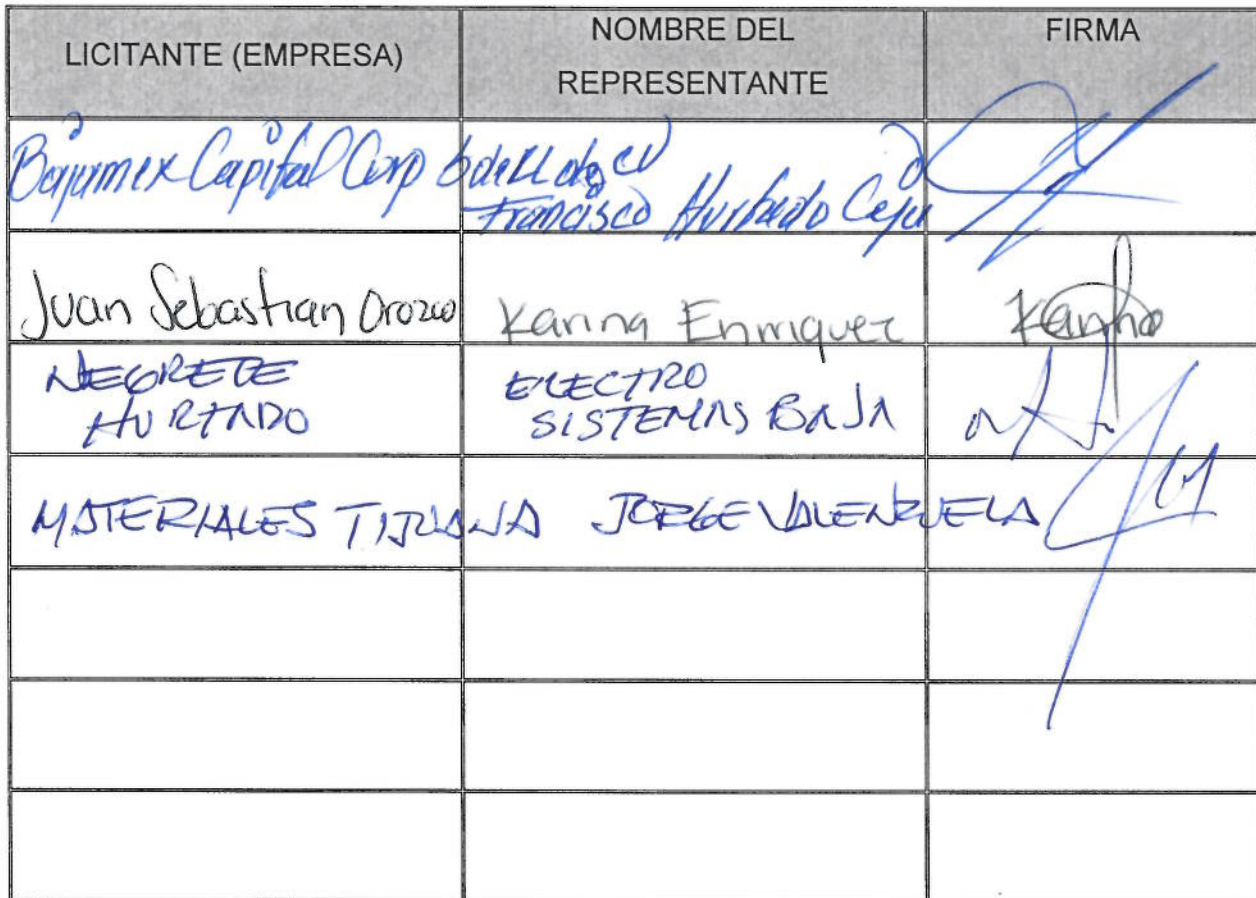 LICITANTE (EMPRESA)
NOMBRE DEL
REPRESENTANTE
FIRMA
Bajamex Capital Corp S de RL de CV
Francisco Hurtado Ceja
Juan Sebastian Orozco
Karina Enriquez
Karina
NEGRETE
HURTADO
ELECTRO
SISTEMAS BAJA
MATERIALES TIJUANA
JORGE VALENZUELA